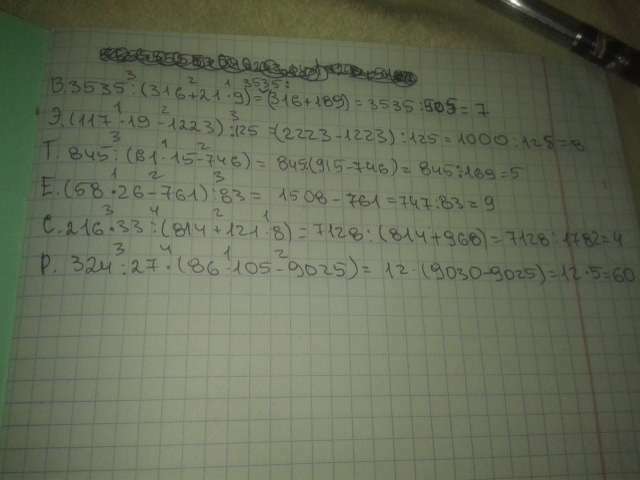 В. 3535 : (316 + 21 · 9) = 3535 : (316 + 189) = 3535 : 505 = 7
Э. (117 · 19 - 1223) : 125 = (2223 - 1223) : 125 = 1000 : 125 = 8
Т. 845 : (61 · 15 - 746) = 845 : (915 - 746) = 845 : 169 = 5
Е. (58 · 26 - 761) : 83 = 1508 - 761 = 747 : 83 = 9
С. 216 · 33 : (814 + 121 · 8) = 7128 : (814 + 968) = 7128 : 1782 = 4
Р. 324 : 27 · (86 · 105 - 9025) = 12 · (9030 - 9025) = 12 · 5 = 60